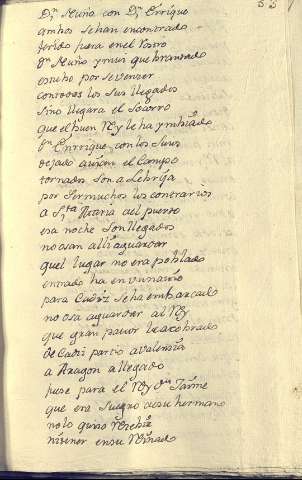 Dⁿ Nuño con Dⁿ Enrrique
ambos se han encontrado
ferido fuera en el rostro
Dⁿ Nuño y mui quebrantado
estubo por se vencer
con todos los sus llegados
sino llegara el socorro
que el buen Rey le ha ymbiado
Dⁿ Enrrique con los suyos
dejado avian el Campo
tornados son a Lebrija
por ser muchos los contrarios
a Sᵗᵃ Maria del puerto
era noche son llegados
no osan alli aguardar
quel lugar no era poblado
entrado ha en un navio
para Cadiz se ha embarcado
no osa aguardar al Rey
que gran pavor le ha cobrado
de Cadiz partio a valencia
a Aragon a llegado
fuese para el Rey dⁿ Jaime
que era suegro de su hermano
no lo quiso rrecivir
ni tener en su Reinado